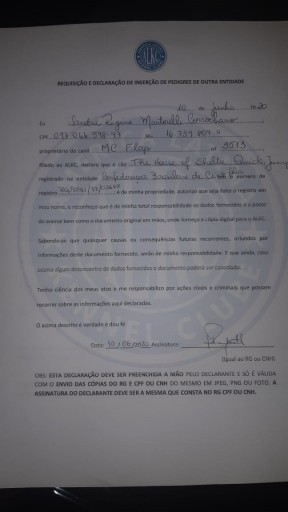 ALKC
REQUISIÇÃO E DECLARAÇÃO DE INSERÇÃO DE PEDIGREE DE OUTRA ENTIDADE
10 de Junho
Eu Sandra Regina
CPF RG
proprietário do canil MC Flap nº 9513
filiado ao ALKC, declaro que o cão The House of Shelby
registrado na entidade Confederação Brasileira de e número de
registro , é de minha propriedade, autorizo que seja feito o registro em
meu nome, e reconheço que é de minha total responsabilidade os dados fornecidos e a posse
do animal bem como o documento original em mãos, onde forneço a cópia digital para o ALKC.
Sabendo-se que quaisquer causas ou consequências futuras recorrentes, oriundas por
informações deste documento fornecido, serão de minha responsabilidade. E que ainda, caso
ocorra algum desencontro de dados fornecidos o documento poderá ser cancelado.
Tenho ciência dos meus atos e me responsabilizo por ações cíveis e criminais que possam
recorrer sobre as informações aqui declaradas.
O acima descrito é verdade e dou fé
Data: 10/06/2020 Assinatura:
(Igual ao RG ou CNH)
OBS: ESTA DECLARAÇÃO DEVE SER PREENCHIDA A MÃO PELO DECLARANTE E SÓ É VÁLIDA
COM O ENVIO DAS CÓPIAS DO RG E CPF OU CNH DO MESMO EM JPEG, PNG OU FOTO. A
ASSINATURA DO DECLARANTE DEVE SER A MESMA QUE CONSTA NO RG CPF OU CNH.